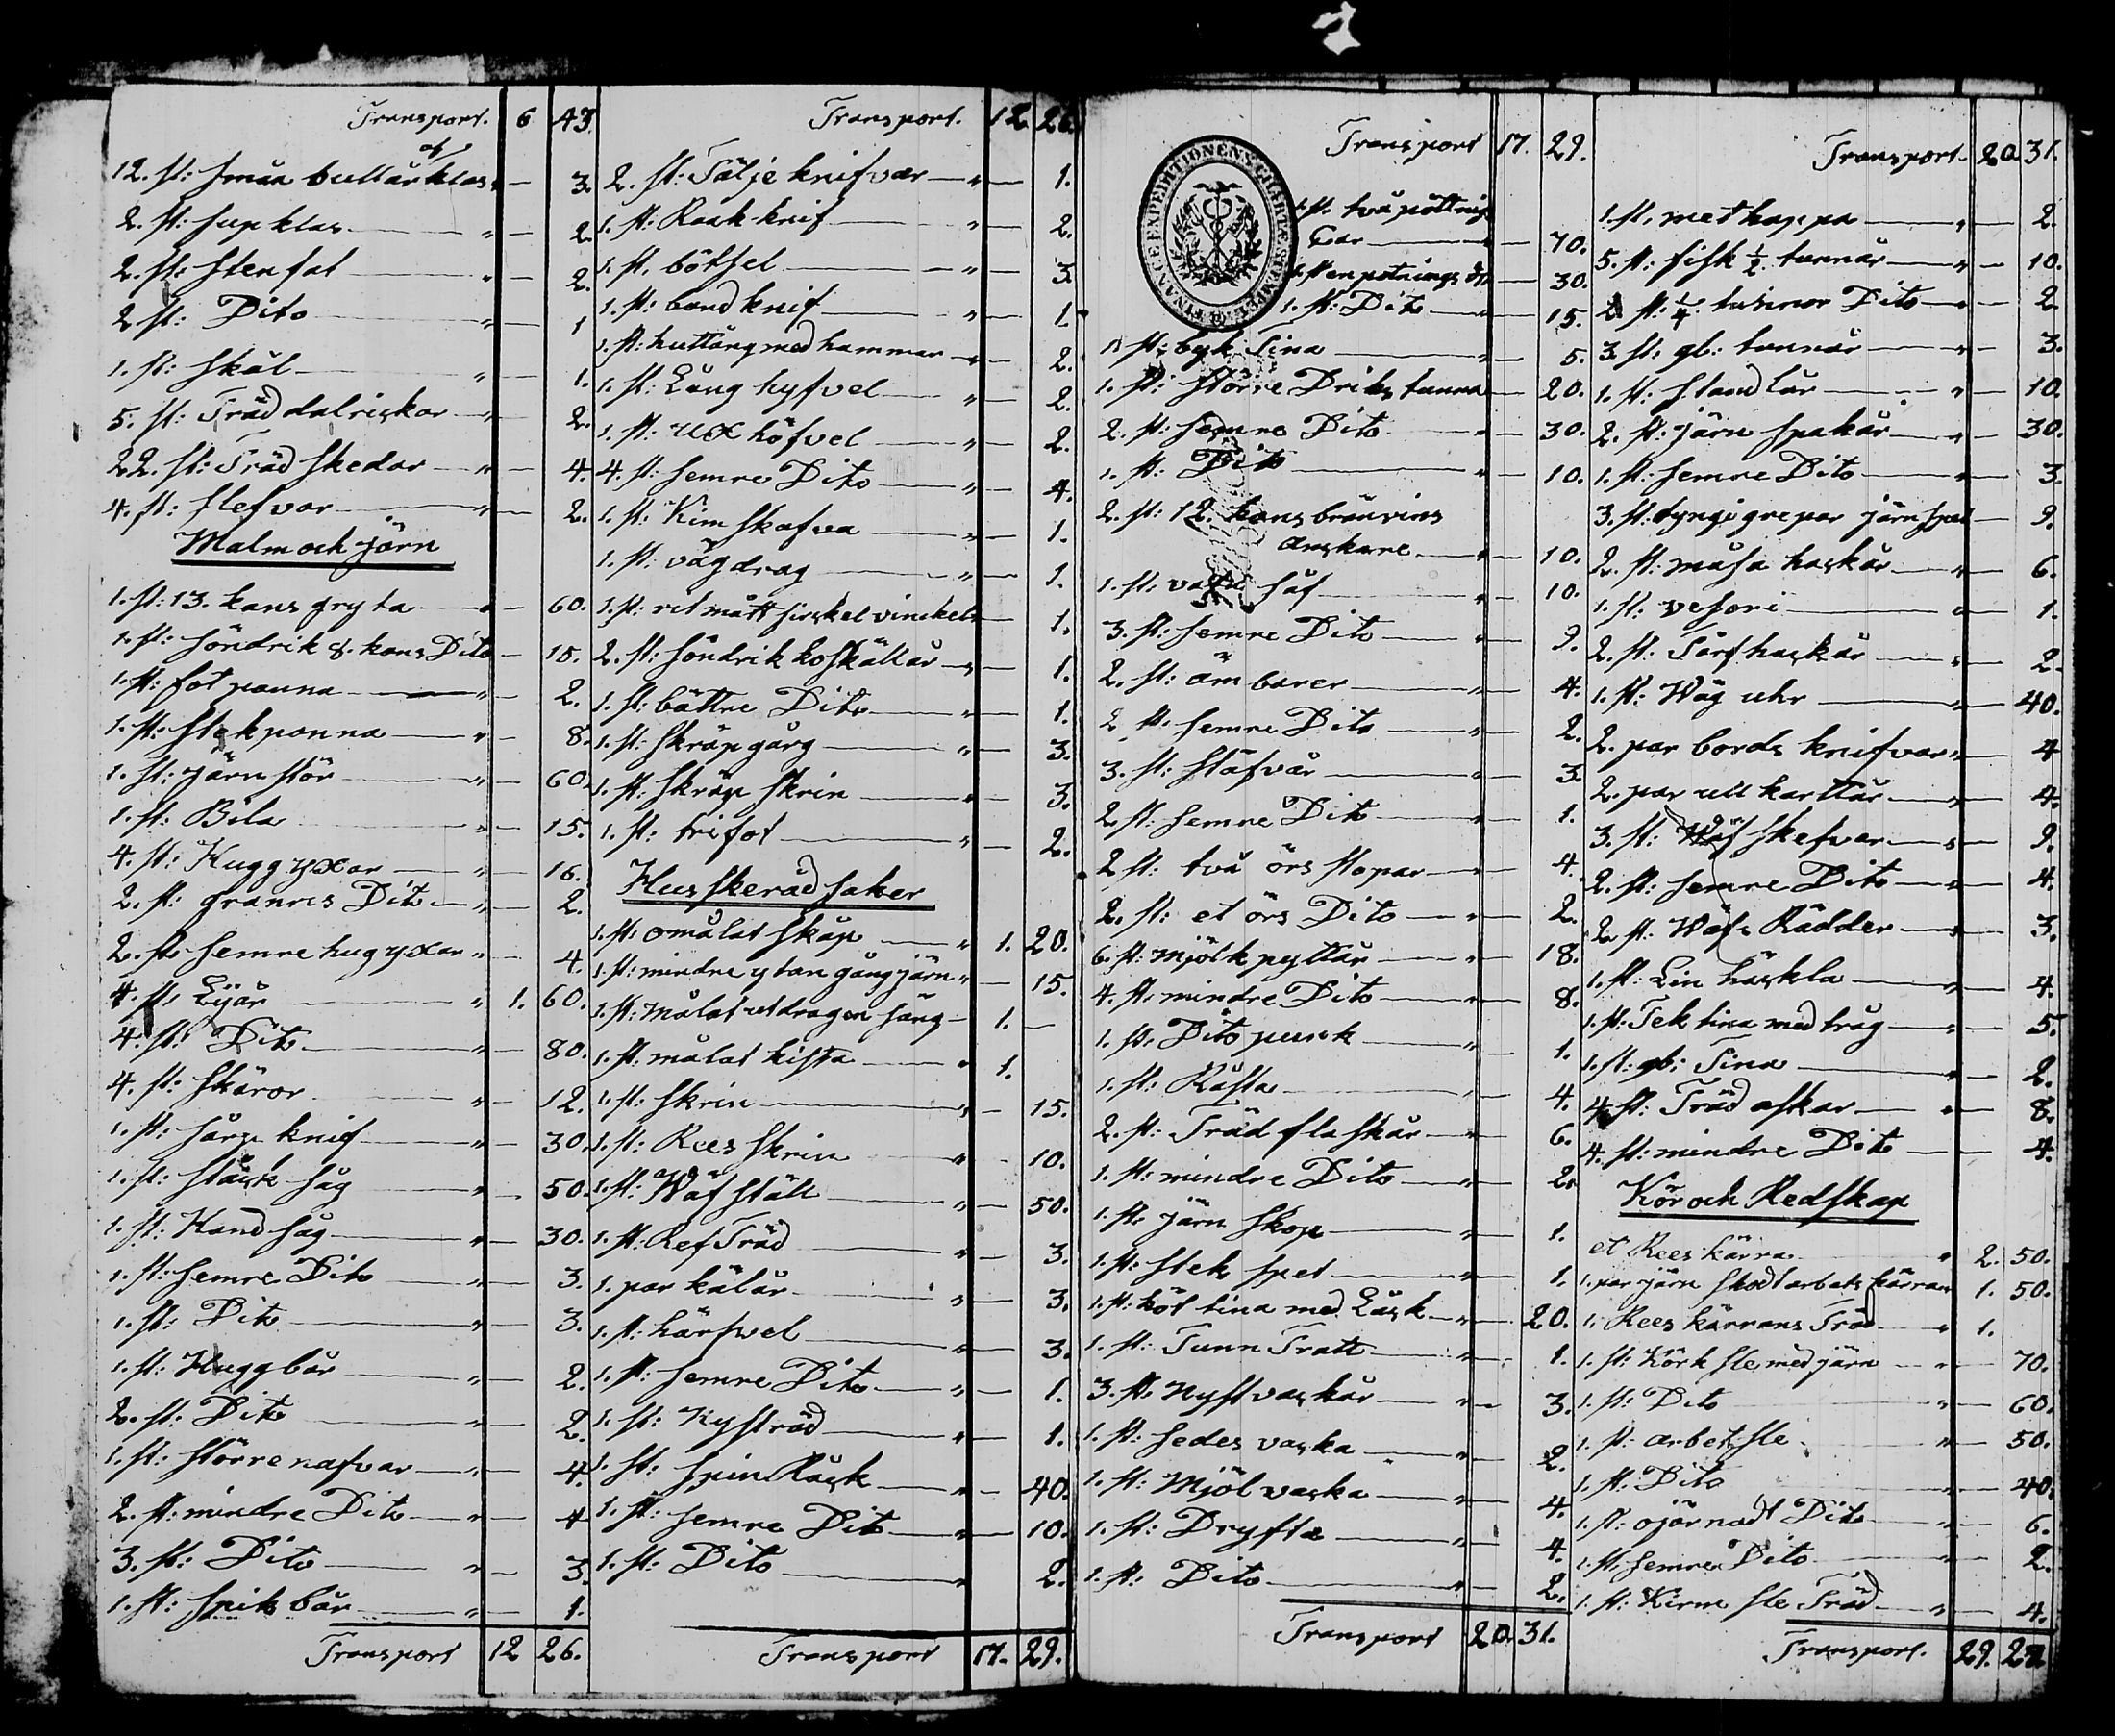 Transport. 6 43.
12. st: små buttärklas " — 3.
2. st: sup klas — " — 2.
2. st: stenfat — " — 2.
2. st: Dito — " — 1
1. st: skål — " — 1.
5. st: Träd dalriskar — " — 2.
22. st: Träd skedar — " — 4.
4. st: slefvar — " — 2.
Malm och järn
1. st: 13. kans gryta — " — 60.
1. st: söndrik 8. kans Dito — 15.
1. st: fot panna — " — 2.
1. st: stekpanna — " — 8.
1. st: järn stör — " — 60.
1. st: Bila — " — 15.
4. st: Hugg yxar — " — 16.
2. st: Dito — " — 2.
2. st: semre hug yxar " — 4.
4. st: Lijär — " 1. 60.
4. st: Dito — " — 80.
4. st: skäror — " — 12.
1. st: knif — " — 30.
1. st: såg — " — 50.
1. st: Hand såg — " — 30.
1. st: semre Dito — " — 3.
1. st: Dito — " — 3.
1. st: Huggbår — " — 2.
2. st: Dito — " — 2.
1. st: större nafvar — " — 4.
2. st: mindre Dito — " — 4
3. st: Dito — " — 3.
1. st: spik bår — " — 1.
Transport 12 26.
Transport. 12. 26.
2. st: Tälje knifvar — " — 1.
1. st: Raak knif — " — 2.
1. st: bötsel — " — 3.
1. st: band knif — " — 1.
1. st: huttång med hammar — " — 2.
1. st: Lång hyfvel — " — 2.
1. st: höfvel — " — 2.
4. st: semre Dito — " — 4.
1. st: Kim skafva — " — 1.
1. st: vågdrag — " — 1.
1. st: ritmått sirkel vinckel — 1.
2. st: söndrik koskällär — " — 1.
1. st: bättre Dito — " — 1.
1. st: skräpgårg — " — 3.
1. st: skräp skrin — " — 3.
1. st: trifot — " — 2.
Husskeråd saker
1. st: omålat skåp — " 1. 20.
1. st: mindre ytan gångjärn " — 15.
1. st: målat utdragen säng — 1. —
1. st: målat kista — " 1.
1. st: skrin — " — 15.
1. st: Rees skrin — " — 10.
1. st: Wäfställ — " — 50.
1. st: Ref Träd — " — 3.
1. par kälär — " — 3.
1. st: härfvel — " — 3.
1. st: semre Dito — " — 1.
1. st: Nysträd — " — 1.
1. st: spin Råck — " — 40.
1. st: semre Dito — " — 10.
1. st: Dito — " — 2.
Transport 17. 29.
FINANCE EXPEDITIONENS CHARTÆ STEMPEL
Transport 17. 29.
1. st: två pöttnings
Car — " — 70.
1. st: en potnings Dto — 30.
1. st: Dito — " — 15.
1. st: byk Tina — " — 5.
1. st: större Driks tunna — 20.
2. st: semre Dito — " — 30.
1. st: Dito — " — 10.
2. st: 12. kans bränvins
anskare — " — 10.
1. st: såf — " — 10.
3. st: semre Dito — " — 9.
2. st: ämbarer — " — 4.
2. st: semre Dito — " — 2.
3. st: stäfvår — " — 3.
2. st: semre Dito — " — 1.
2 st: två örs stopar — " — 4.
2. st: et örs Dito — " — 2.
6. st: mjölk pyttår — " — 18.
4. st: mindre Dito — " — 8.
1. st: Dito punk — " — 1.
1. st: Råsta — " — 4.
2. st: Träd flaskår — " — 6.
1. st: mindre Dito — " — 2.
1. st: järn skop — " — 1.
1. st: stek spet — " — 1.
1. st: köt tina med Låsk — " — 20.
1. st: Tunn Tratt — " — 1.
3. st: Nystvaskår — " — 3.
1. st: sedes vaska — " — 2.
1. st: Mjöl vaska — " — 4.
1. st: Dryfta — " — 4.
1. st: Dito — " — 2.
Transport 20. 31.
Transport 20 31.
1. st: met kappa — " — 2.
5. st: fisk ½ tunnår — " — 10.
2 st: ¼ tunnor Dito — " — 2
3. st: gl: tunnår — " — 3.
1. st: standlår — " — 10.
2. st: järn spakår — " — 30.
1. st: semre Dito — " — 3.
3. st: dyngi grepar järn spad — 9.
2. st: måsa hackår — " — 6.
1. st: vesori — " — 1.
2. st: Tårfhackår — " — 2.
1. st: Wäg uhr — " — 40.
2. par bords knifvar " — 4
2. par ull karttår — " — 4.
3. st: Wäf skefvar — " — 9.
2. st: semre Dito — " — 4.
2. st: Wäf Rädder — " — 3.
1. st: Lin häckla — " — 4.
1. st: Tek tina med tråg — " — 5.
1. st: gl: Tina — " — 2.
4 st: Träd askar — " — 8.
4. st: mindre Dito — 4.
Kör och Redskap
et Rees kärra — " 2. 50.
1. par järn skodt arbets kärran 1. 50.
1. Rees kärrans Träd — " 1.
1. st: Körk sle med järn — " — 70.
1. st: Dito " — 60.
1. st: arbetssle — " — 50.
1. st: Dito " — 40.
1. st: ojärnadt Dito — " — 6.
1. st: semre Dito — " — 2.
1. st: Kirne sle Träd — " — 4.
Transport. 29.